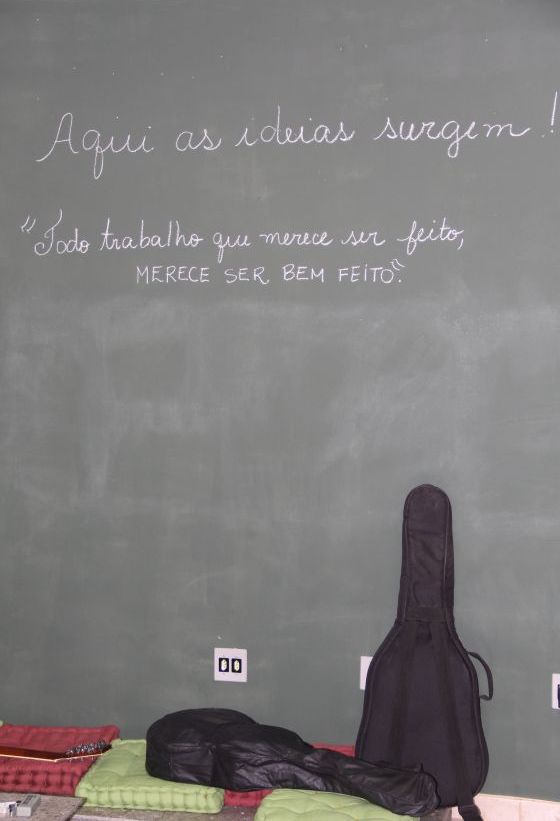 Aqui as ideias surgem!
"Todo trabalho que merece ser feito,
MERECE SER BEM FEITO".